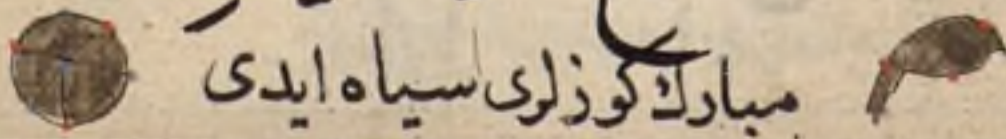 مبارك كوزلرى سياه ايدى